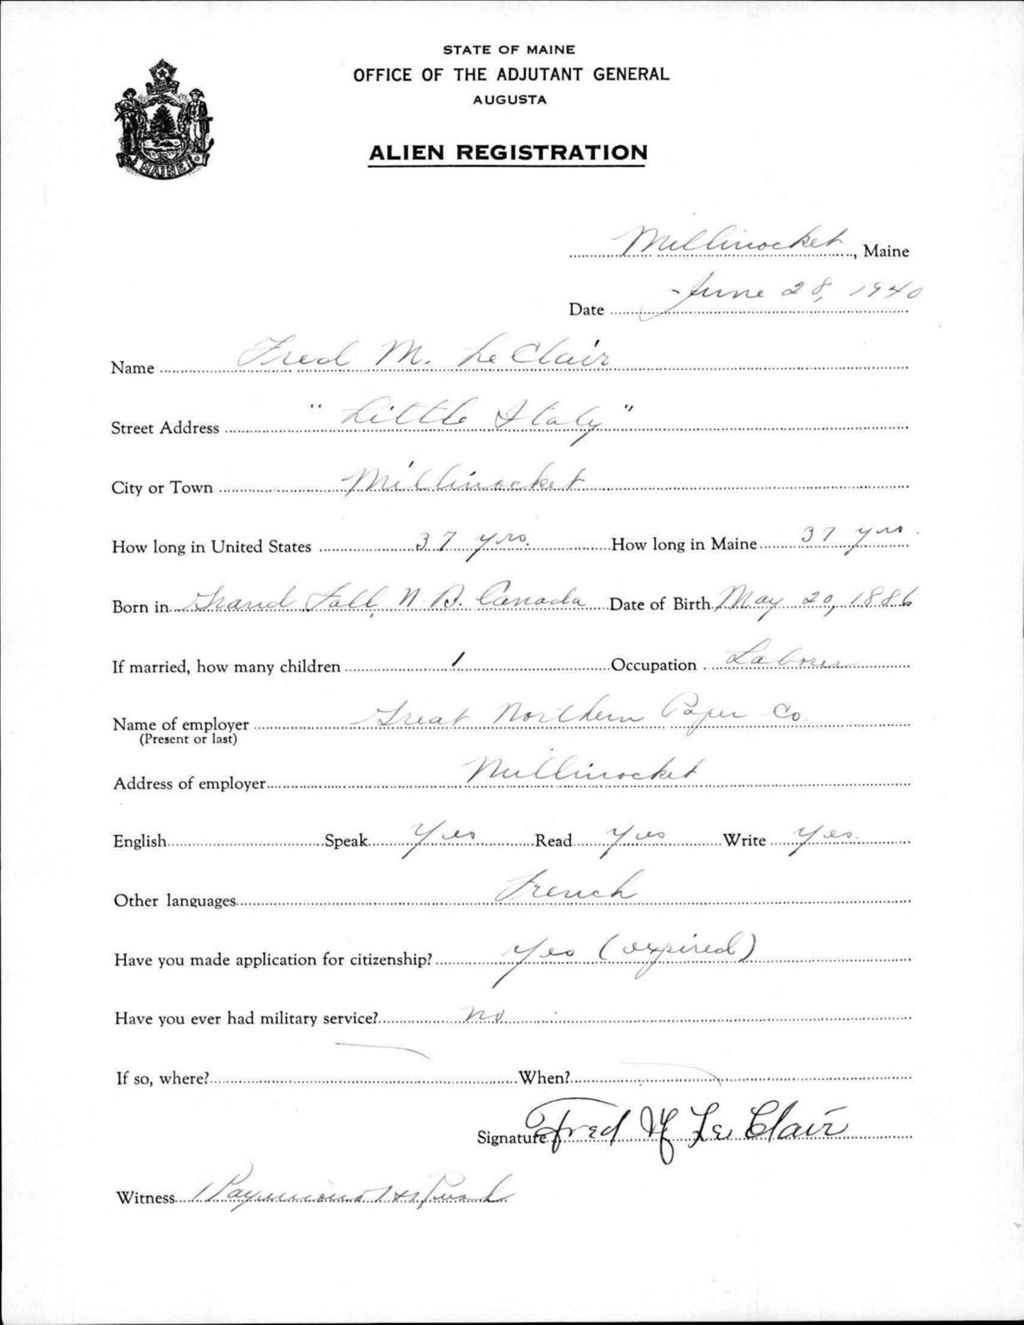 STATE OF MAINE
OFFICE OF THE ADJUTANT GENERAL
AUGUSTA
ALIEN REGISTRATION
MAINE
Millinocket, Maine
Date June 28, 1940
Name Fred M. LeClair
Street Address "Little Italy"
City or Town Millinocket
How long in United States 37 yrs. How long in Maine 37 yrs.
Born in Grand Fall, N. B. Canada Date of Birth May 20, 1886
If married, how many children 1 Occupation Laborer
Name of employer Great Northern Paper Co.
(Present or last)
Address of employer Millinocket
English Speak Yes Read Yes Write Yes
Other languages French
Have you made application for citizenship? Yes (expired)
Have you ever had military service? No
If so, where? When?
Signature Fred M LeClair
Witness Raymond H.